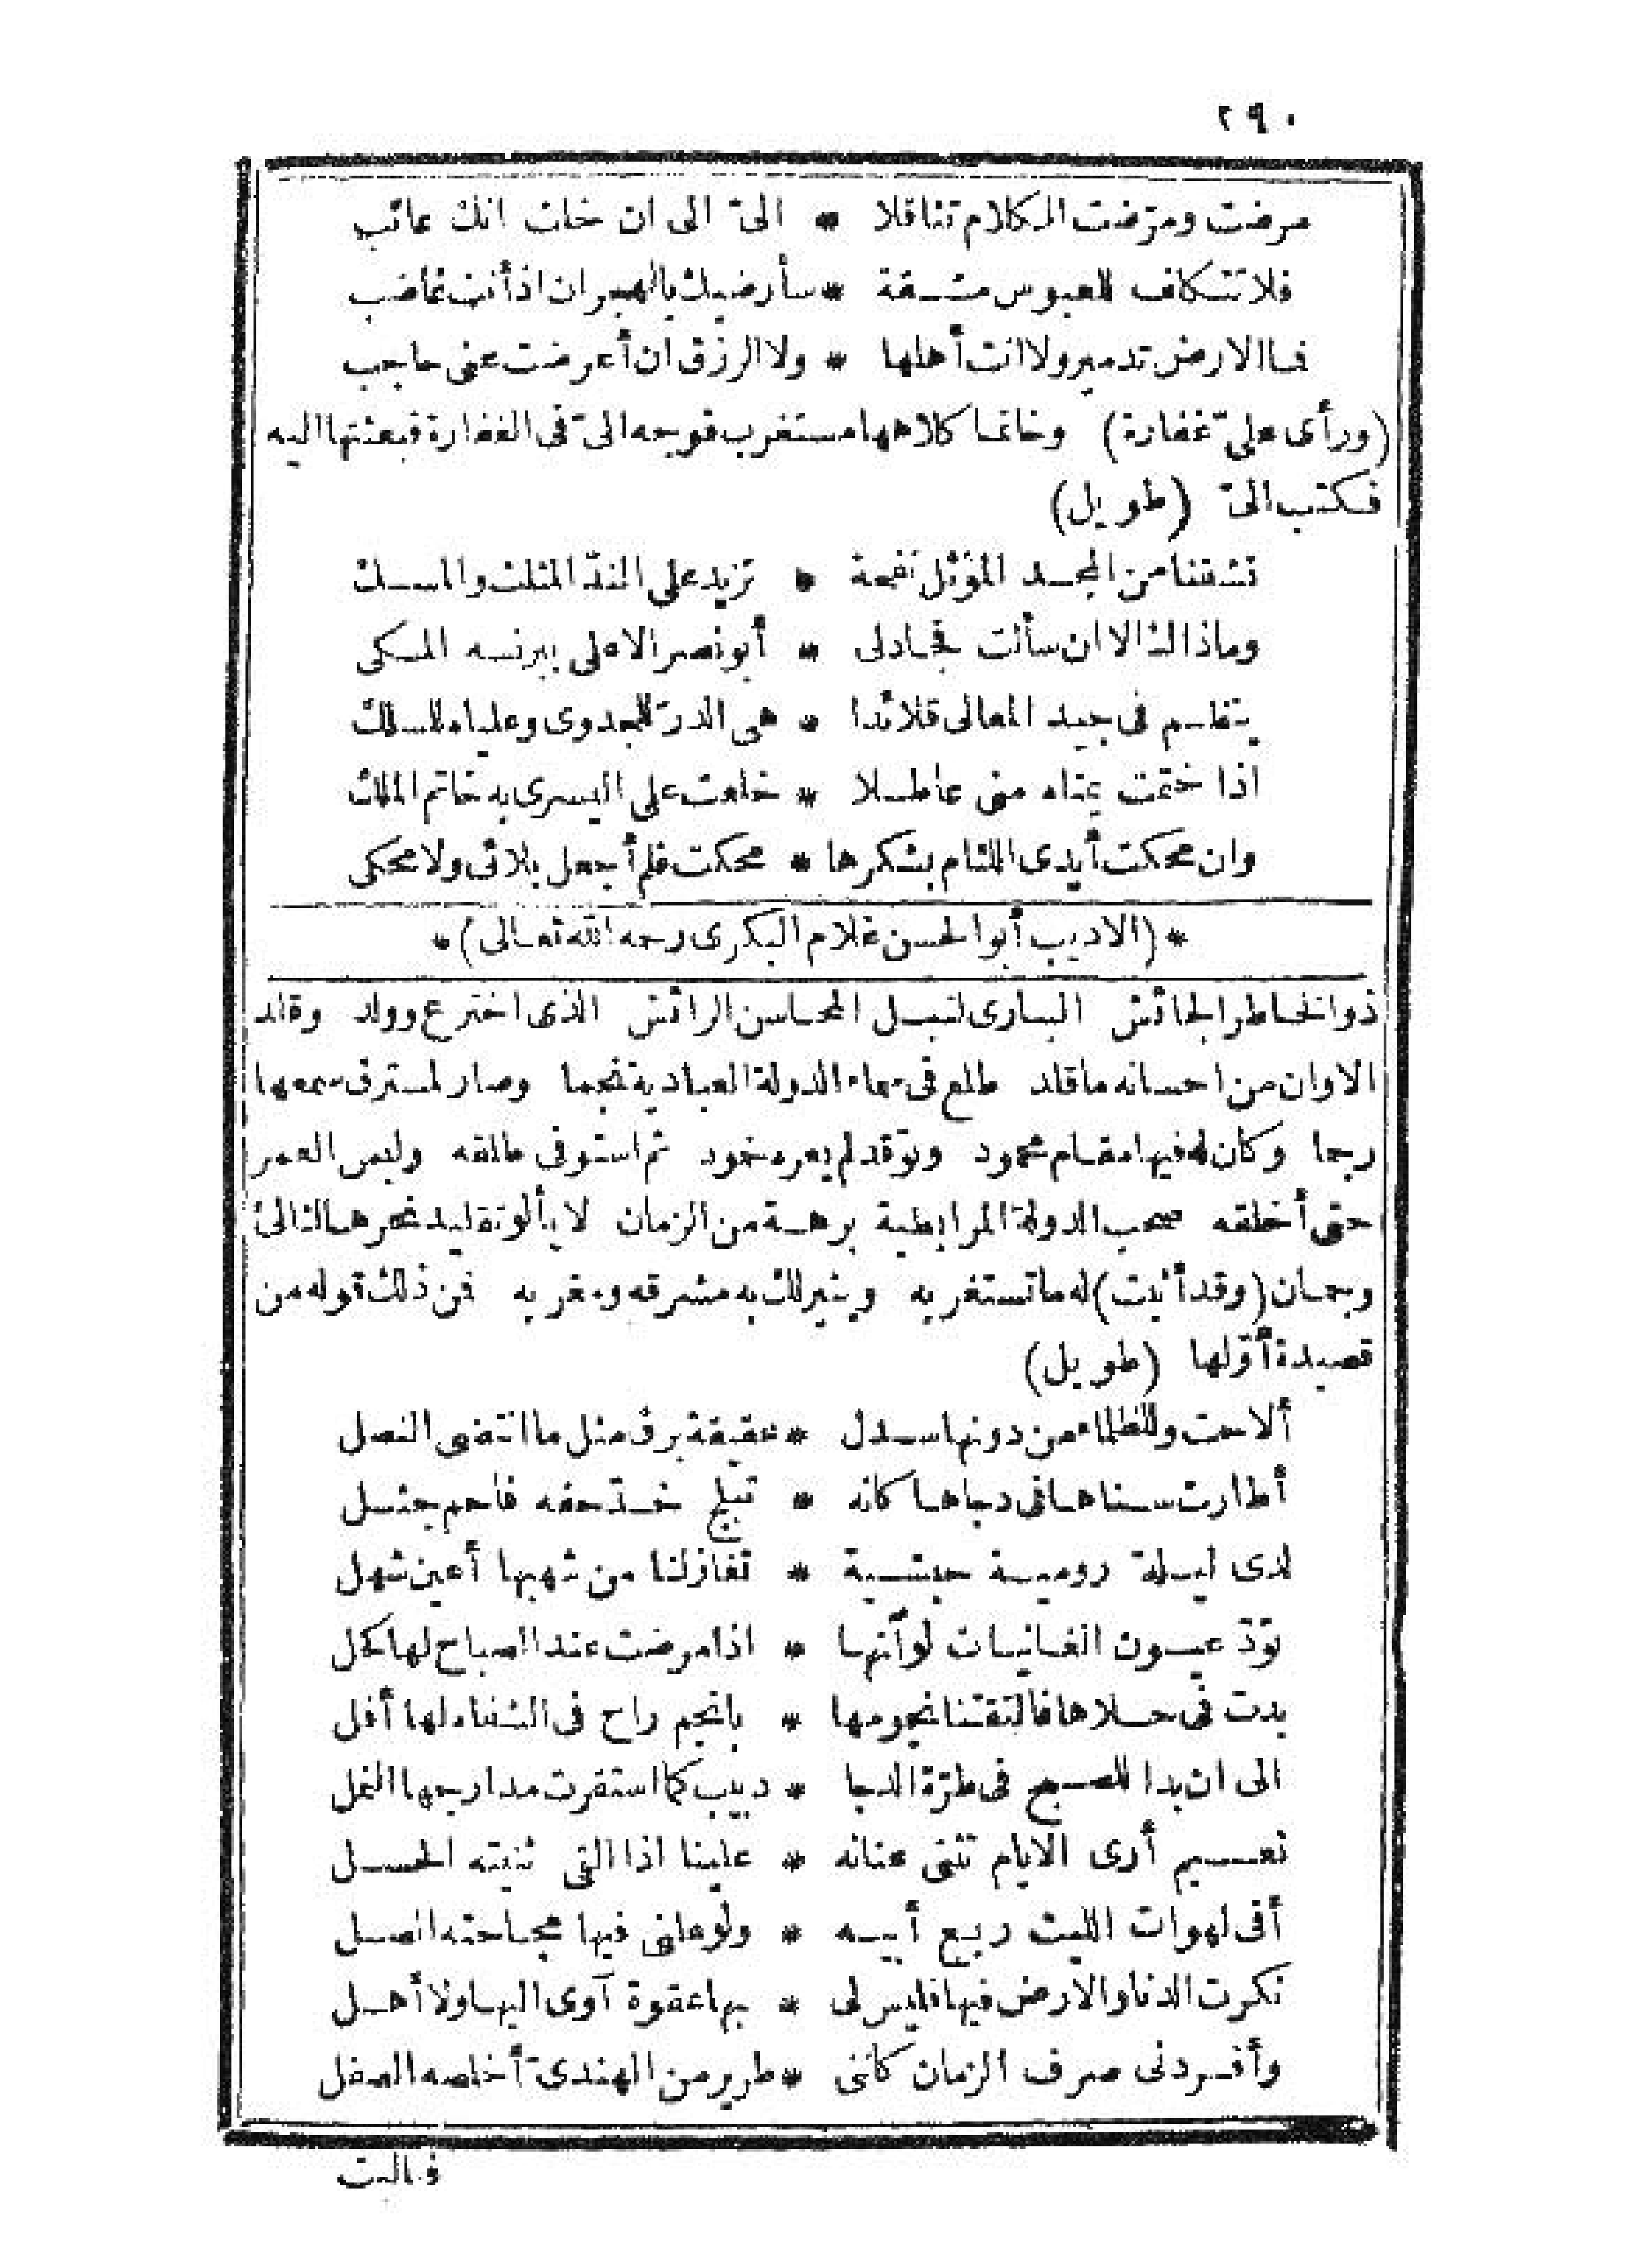 ٢٩٠
مرضت ومرّضت الكلام تثاقلا * الىّ الى ان خلت انك عائب
فلا تتكلف للعبوس مشقة * سأرضيك بالهجران اذ أنت غاضب
فما الارض تدمير ولا انت أهلها * ولا الرزق ان أعرضت عنى حاجب
(ورأى علىّ غفارة) وخاتما كلاهما مستغرب فوجه الىّ فى الغفارة فبعثتها اليه
فكتب الىّ (طويل)
تنشقنا من المجد المؤثل نفحة * تزيد على الندّ المثلث والمسك
وماذاك الا ان سألت فجادلى * أبو نصر الاعلى ببرنسه المسكى
ينظم فى جيد المعالى قلائدا * هى الدرّ للجدوى وعلياه للسلك
اذا ختمت يمناه منى عاطلا * خلعت على اليسرى به خاتم الملك
وان محكت أيدى اللئام بشكرها * محكت فلم أجعل بلائى ولا محكى
*(الاديب أبو الحسن غلام البكرى رحمه الله تعالى)*
ذو الخاطر الجائش البارى لنبل المحاسن الرائش الذى اخترع وولد وقلد
الاوان من احسانه ما قلد طلع فى سماء الدولة العبادية نجما وصار لمسترق سمعها
رجما وكان له فيها مقام محمود وتوقد لم يعره خمود ثم استوفى طلقه ولبس العمر
حتى أخلقه صحب الدولة المرابطية برهة من الزمان لا يألو تقليد نحرها لآلئ
وجمان (وقد أثبت) له ما تستغربه وينير لك به مشرقه ومغربه فمن ذلك قوله من
قصيدة أوّلها (طويل)
ألا سمت وللظلماء من دونها سدل * عقيقة برق مثل ما انتضى النصل
أطارت سناها فى دجاها كانه * تبلج خدّ حفه فاحم جثل
لدى ليلة رومية حبشية * تغازلنا من شهبها أعين شهل
تودّ عيون الغانيات لوأنها * اذا مرضت عند الصباح لها كحل
بدت فى حلاها فالتقتنا نجومها * بانجم راح فى الشفاه لها أفل
الى ان بدا للصبح فى طرّة الدجا * دبيب كما استقرت مدارجها النمل
نعيم أرى الايام تثنى عنانه * علينا اذا التى ثنيته الحسل
أفى لهوات الليث ربع أبيه * ولو علنى فيها مجاجته الصل
نكرت الدنا والارض فيها فليس لى * بها عقوة آوى اليها ولا أهل
وأفردنى صرف الزمان كاننى * طرير من الهندىّ أخلصه الصقل
فمالت